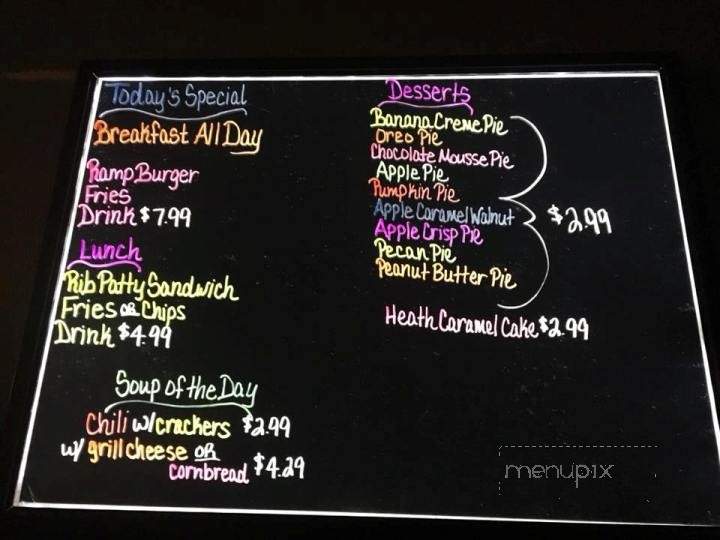 Today's Special
Breakfast All Day
Ramp Burger
Fries
Drink $7.99
Lunch
Rib Patty Sandwich
Fries or Chips
Drink $4.99
Soup of the Day
Chili w/crackers $2.99
w/ grill cheese or
cornbread $4.29
Desserts
Banana Creme Pie
Oreo Pie
Chocolate Mousse Pie
Apple Pie
Pumpkin Pie
Apple Caramel Walnut $2.99
Apple Crisp Pie
Pecan Pie
Peanut Butter Pie
Heath Caramel Cake $2.99
menupix